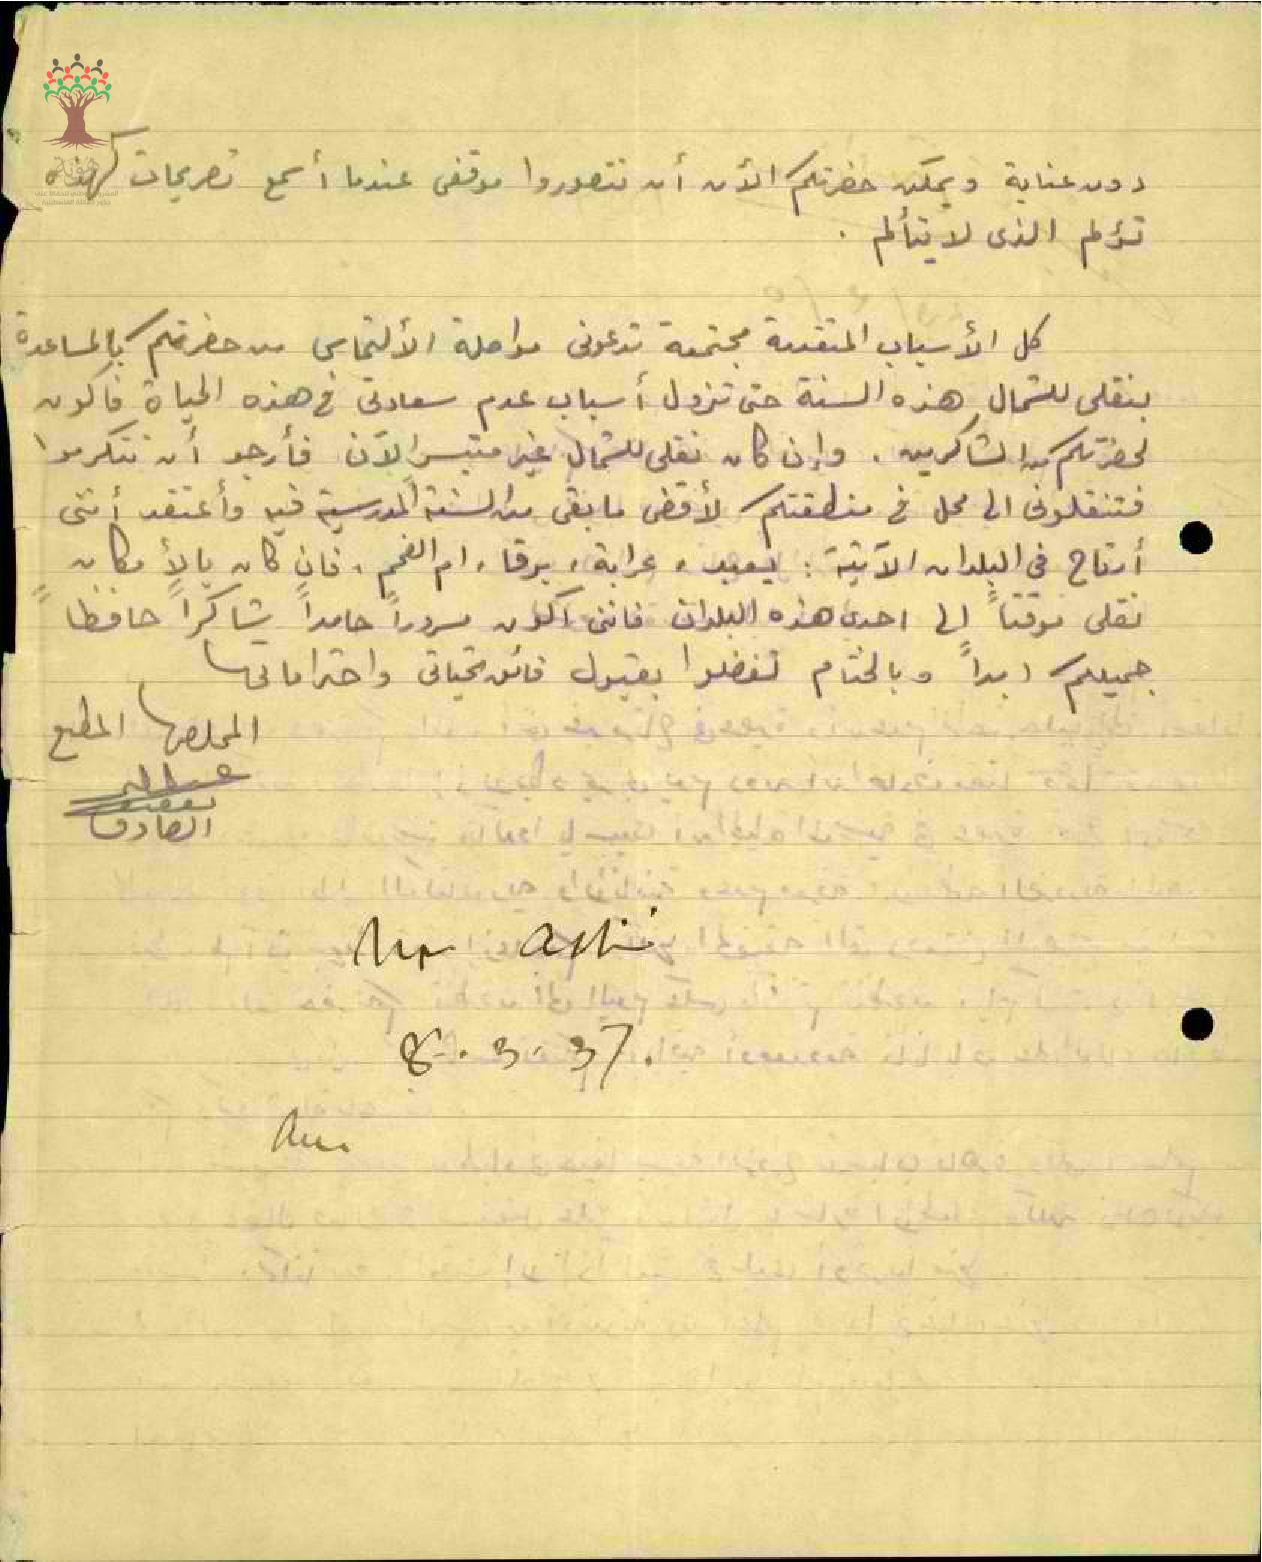 دون عناية ويمكن حضرتكم الآن أن تتصوروا موقفى عندما أسمع تصريحات كهذه
تؤلم الذى لا يتألم .
كل الأسباب المتقدمة مجتمعة تدعونى مواصلة الألتماس من حضرتكم بالمساعدة
بنقلى للشمال هذه السنة حتى تزول أسباب عدم سعادتى فى هذه الحياة فأكون
لحضرتكم من الشاكرين . وإن كان نقلى للشمال غير متيسر الآن فأرجو أن تتكرموا
فتنقلونى الى محل فى منطقتكم لأقضى ما بقى من السنة المدرسية فيه وأعتقد أننى
أرتاح فى البلدان الآتية : يعبد ، عرابة ، برقا ، ام الفحم ، فان كان بالأمكان
نقلى موقتاً الى احدى هذه البلدان فاننى أكون مسروراً حامداً شاكراً حافظاً
جميلكم ابداً وبالختام تفضلوا بقبول فائق تحياتى واحتراماتى
المخلص المطيع
الصادق
Mr
8.3.37.